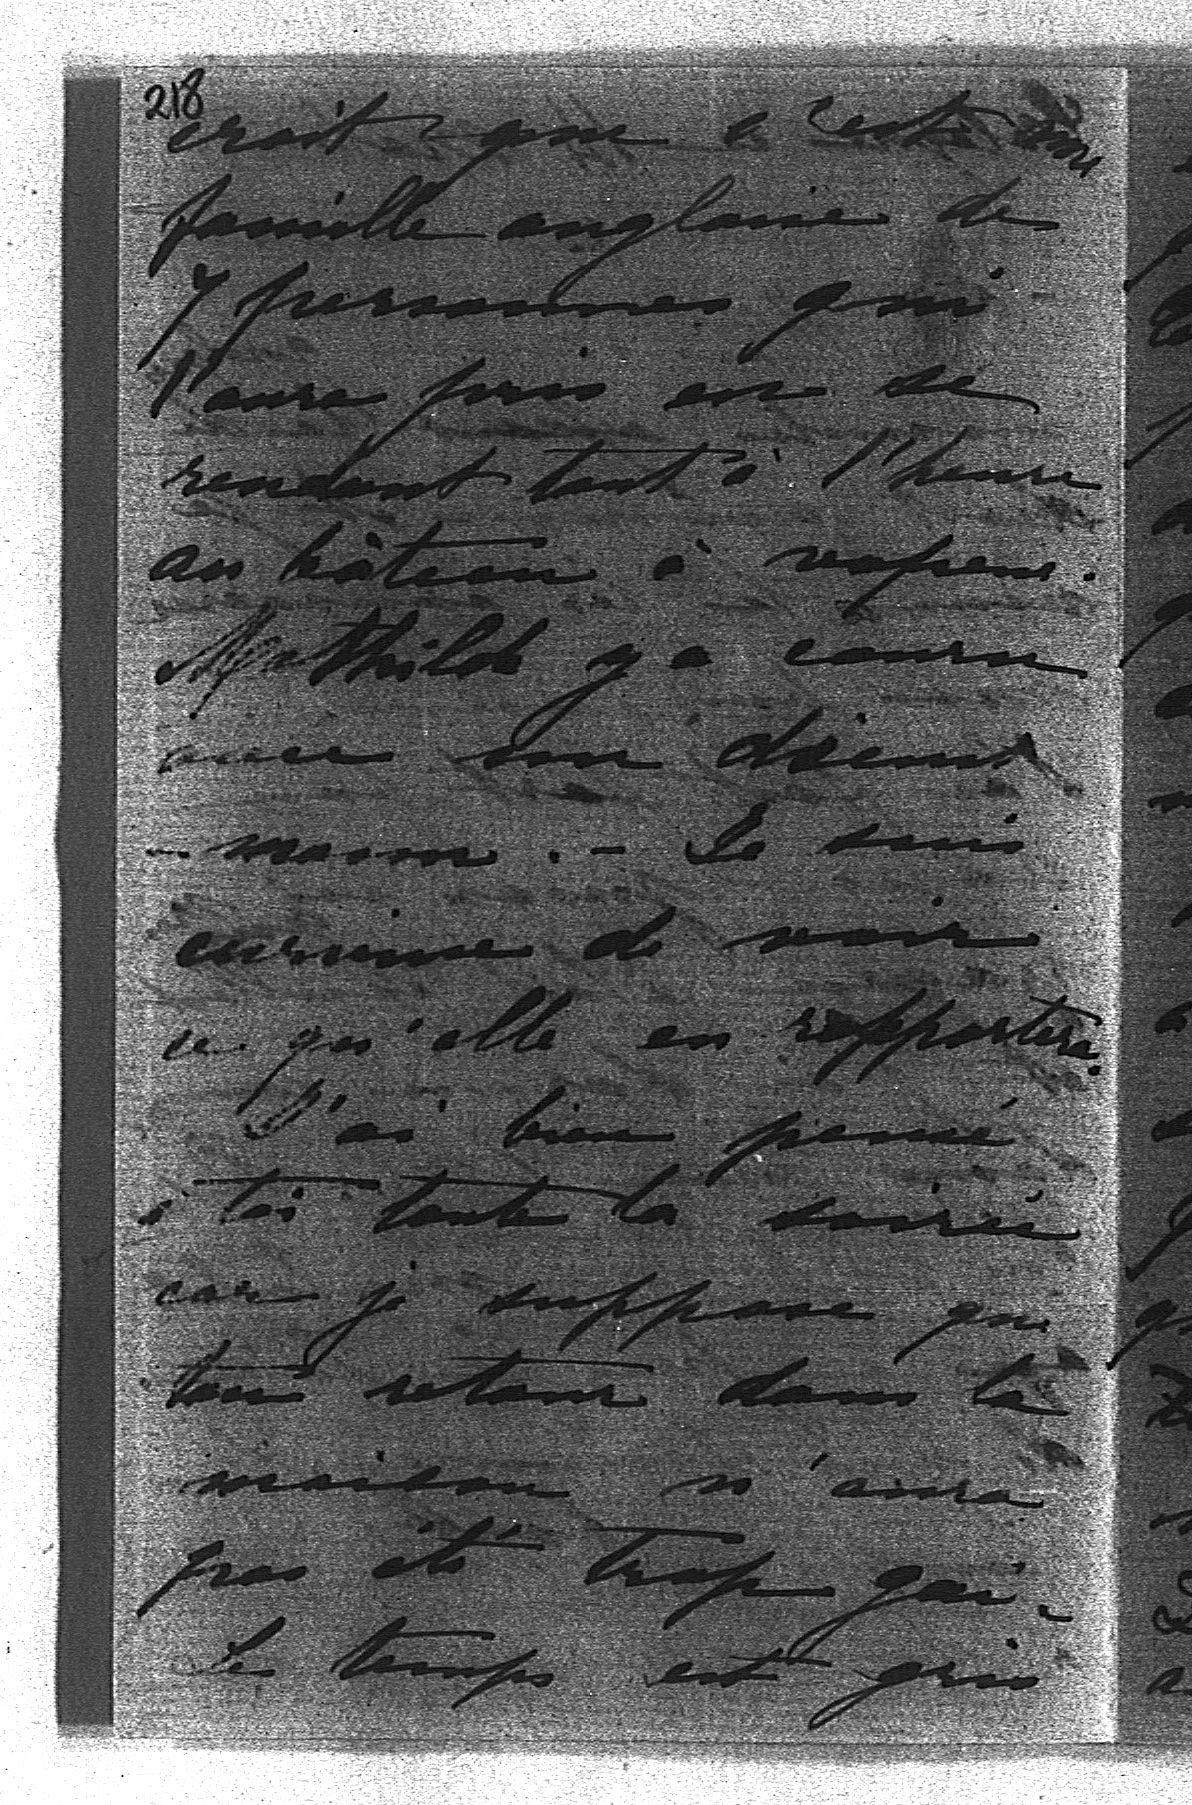 218
croit que c'est une
famille anglaise de
7 personnes qui
l'aura pris en se
rendant tout à l'heure
au bâteau à vapeur.
Mathilde y a couru
avec son
maron. - Je suis
curieuse de voir
ce qu'elle en rapportera.
J'ai bien pensé
à toi toute la soirée
car je suppose que
ton retour dans la
maison n'aura
pas été trop gai.
Le temps est gris